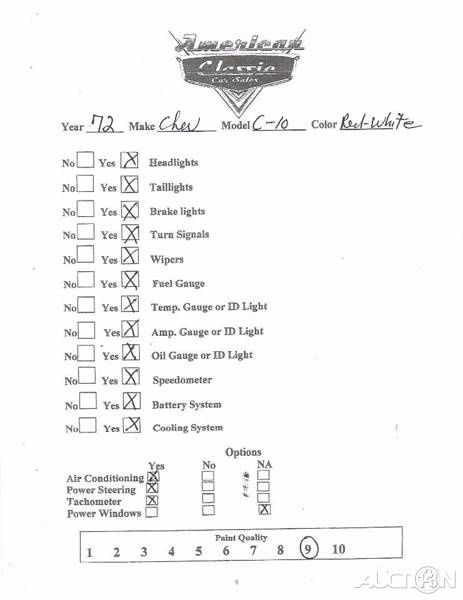 American
Classic
Car Sales
Year 72 Make Chev Model C-10 Color Red-White
No Yes X Headlights
No Yes X Taillights
No Yes X Brake lights
No Yes X Turn Signals
No Yes X Wipers
No Yes X Fuel Gauge
No Yes X Temp. Gauge or ID Light
No Yes X Amp. Gauge or ID Light
No Yes X Oil Gauge or ID Light
No Yes X Speedometer
No Yes X Battery System
No Yes X Cooling System
Options
Yes No NA
Air Conditioning X
Power Steering X
Tachometer X
Power Windows X
Paint Quality
1 2 3 4 5 6 7 8 9 10
AUCTION 13